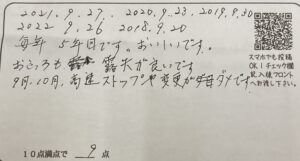 2021.9.27. 2020.9.23. 2019.9.30
2022 9.26 2018.9.20
毎年 5年目です。おいしいです。
おふろも 露天が良いです
9月、10月、高速ストップや変更がダメです。
スマホでも投稿
OK!チェック欄
記入後フロント
へお渡し下さい。
10点満点で 9 点